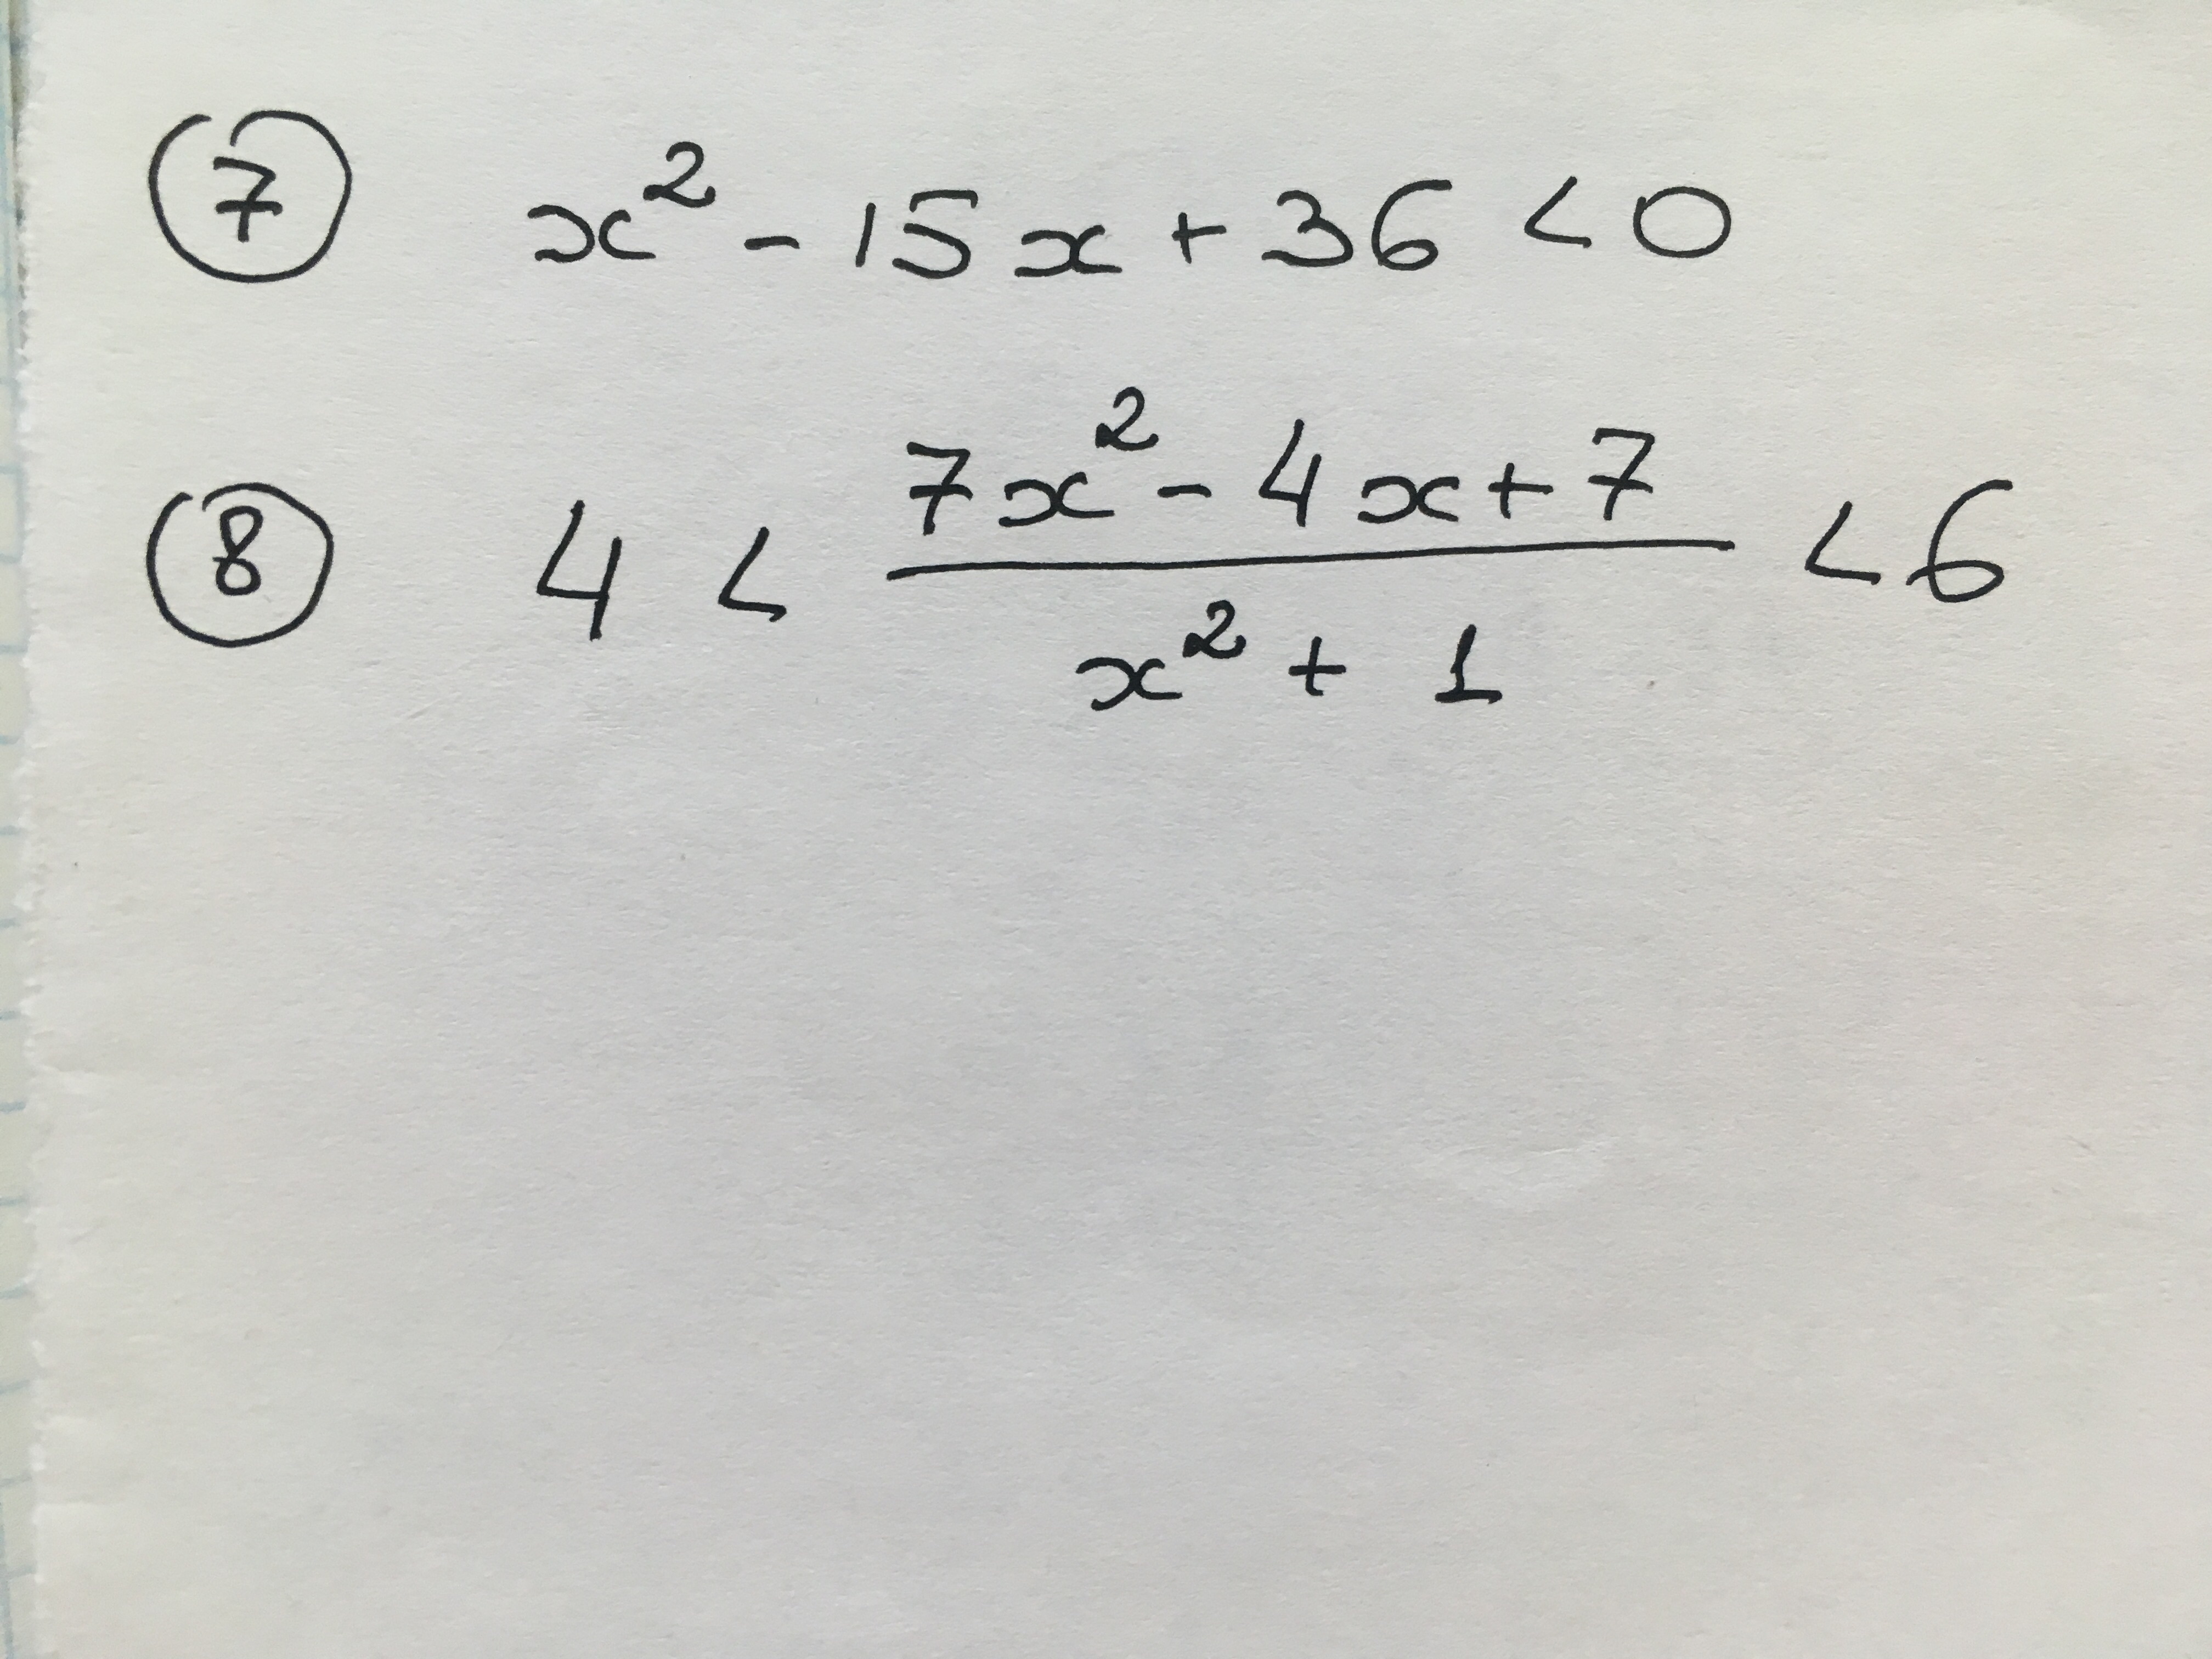 ⑦ x² - 15x + 36 < 0
⑧ 4 < (7x² - 4x + 7)/(x² + 1) < 6